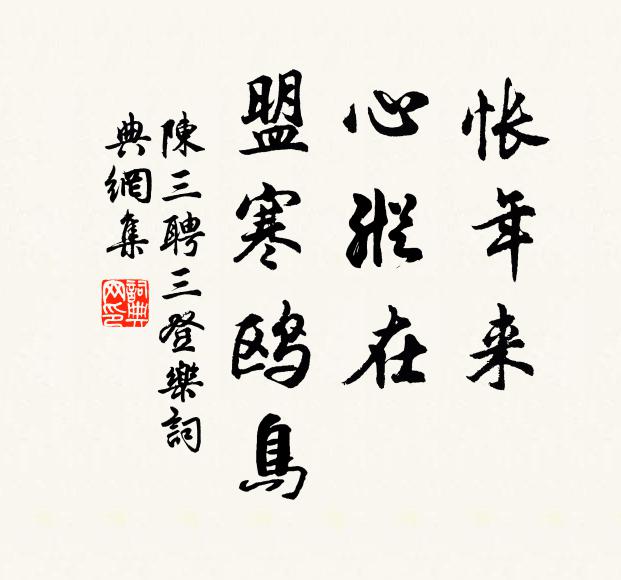 悵年来
心縱在
盟寒鸥鳥
陳三聘三登樂詞
典網集
詞典网印